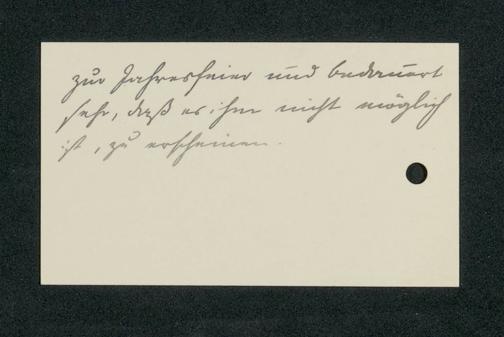 zur Jahresfeier und bedauert
sehr, daß es ihm nicht möglich
ist, zu erscheinen.